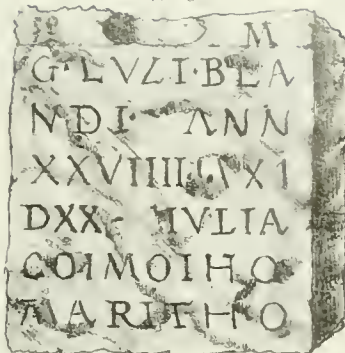 M
G·LVLI·BLA
NDI· ANN
XXVIIII XI
DXX· IVLIA
COIMOIHO
MARITHO